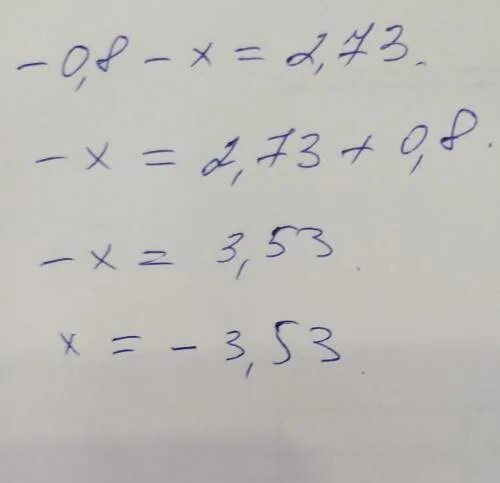 -0,8 - x = 2,73.
-x = 2,73 + 0,8.
-x = 3,53
x = -3,53